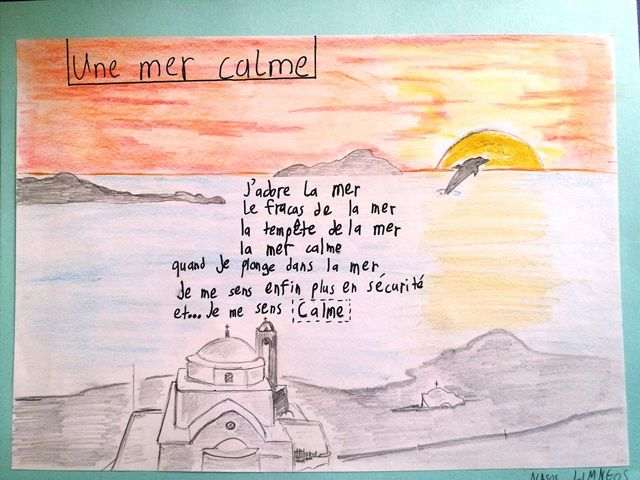 Une mer calme
J'adore la mer
Le fracas de la mer
la tempête de la mer
la mer calme
quand Je plonge dans la mer
Je me sens enfin plus en sécurité
et... Je me sens Calme
LIMNEOS